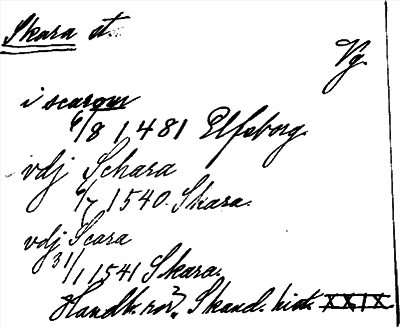 Skara st.
Vg.
i scarom
6/8 1481 Elfsborg.
vdj Schara
6/7 1540 Skara.
vdj Scara
31/1 1541 Skara.
Handl. rör. Skand. hist. XXIX